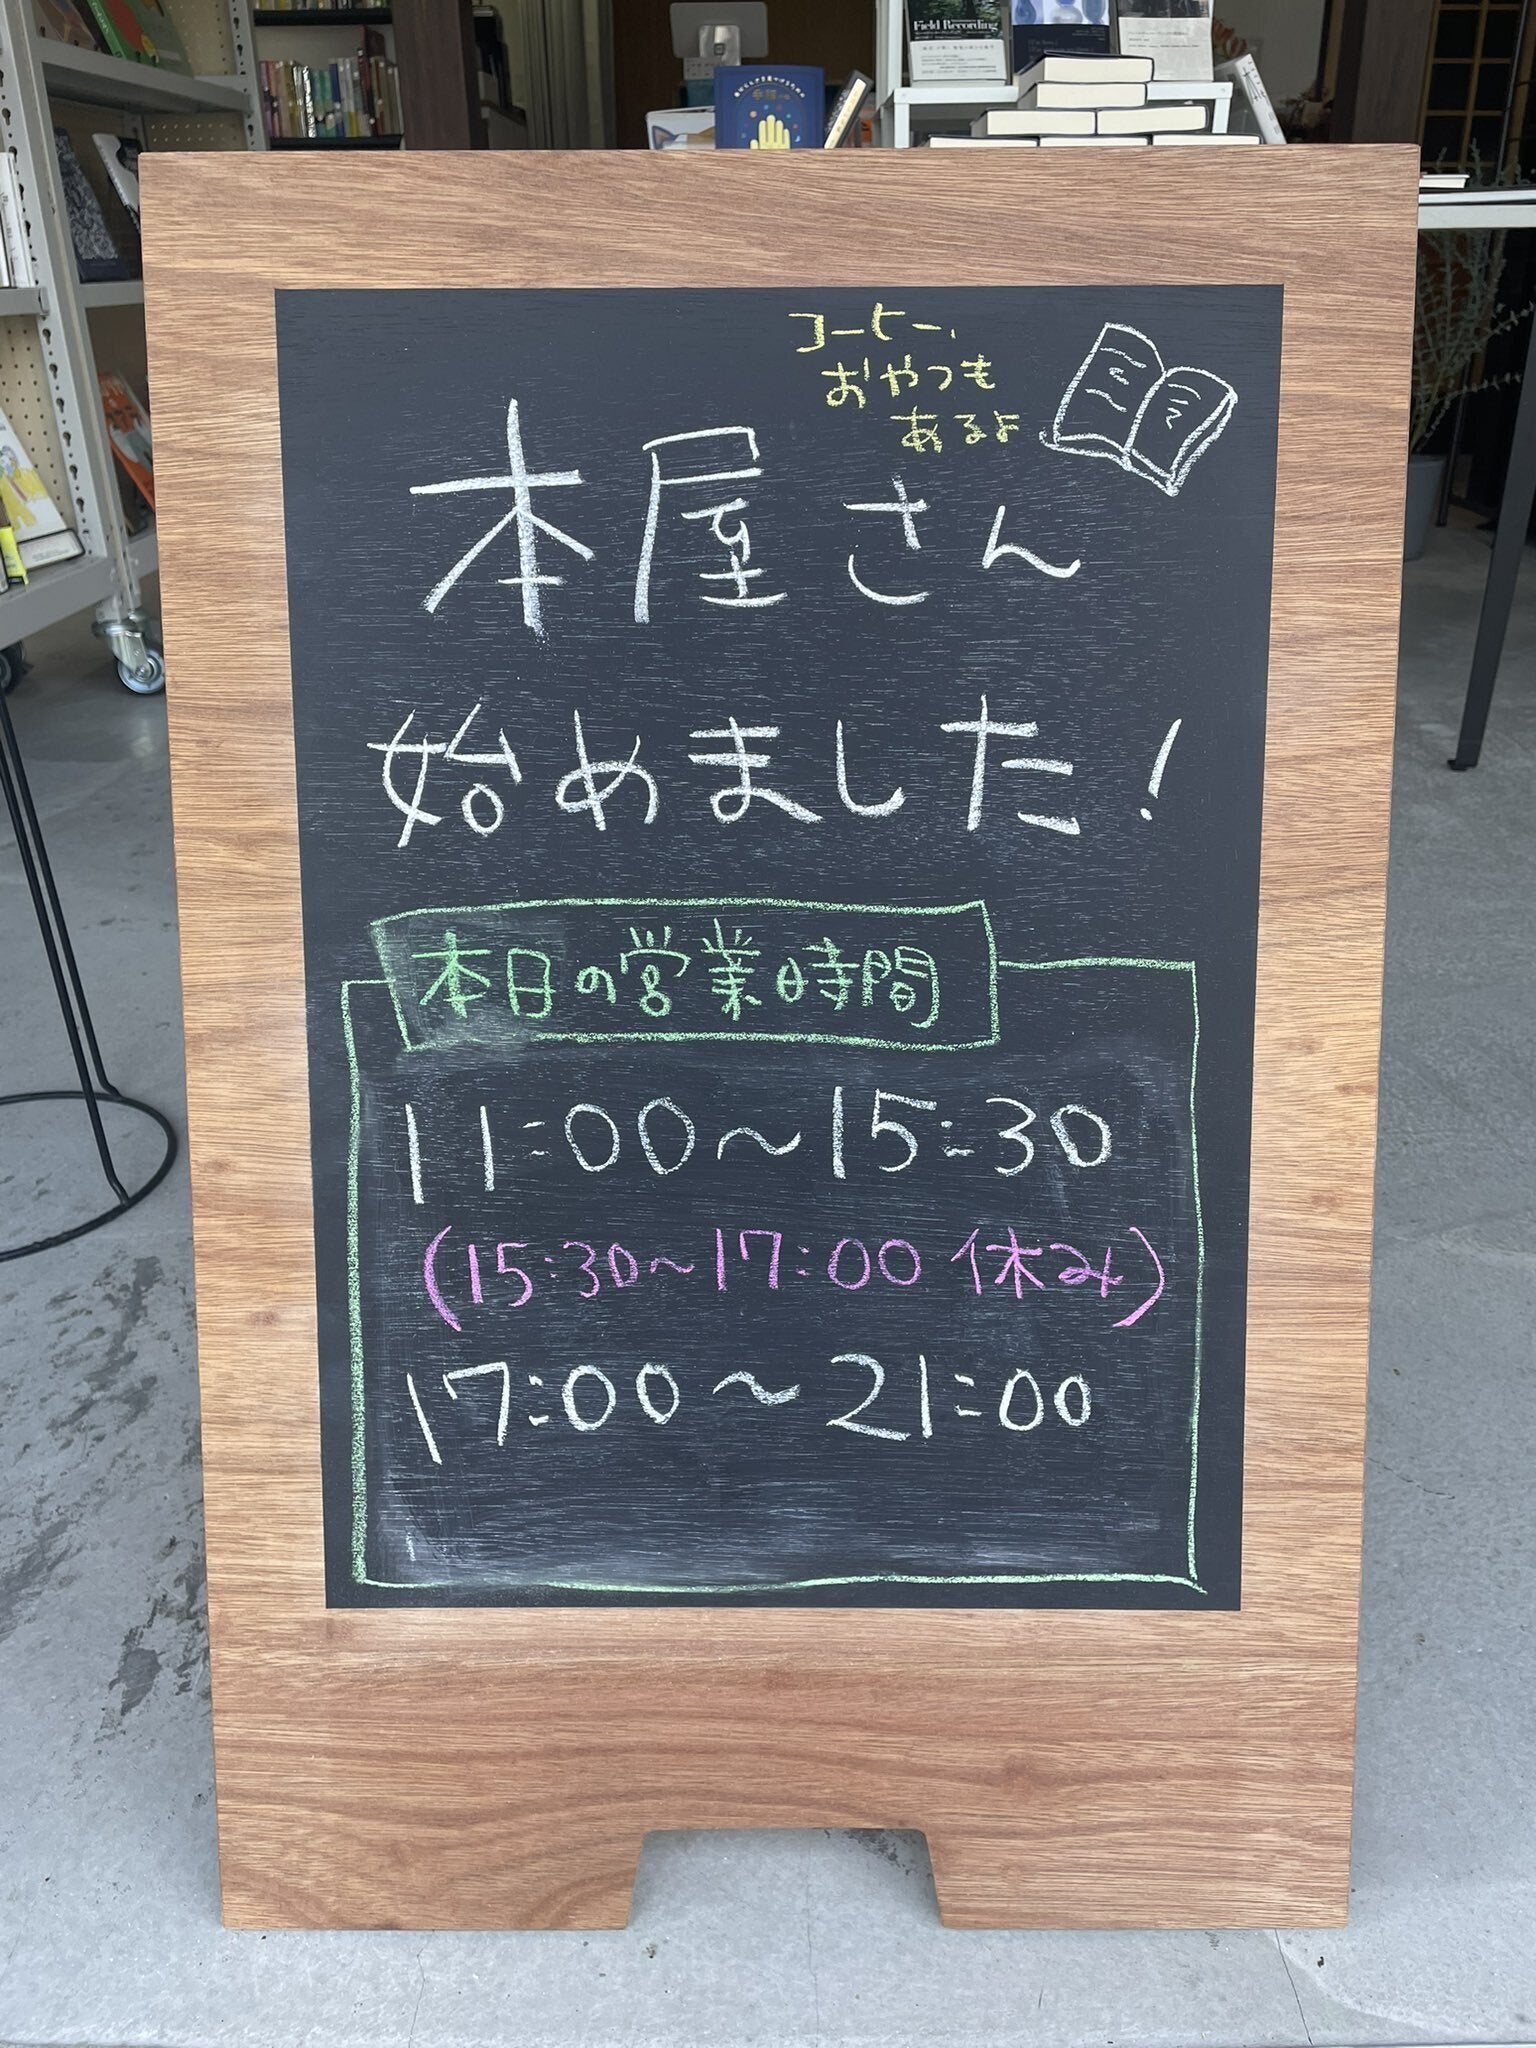 Field Recording
コーヒー、
おやつも
あるよ
本屋さん
始めました!
本日の営業時間
11:00〜15:30
(15:30〜17:00 休み)
17:00〜21:00